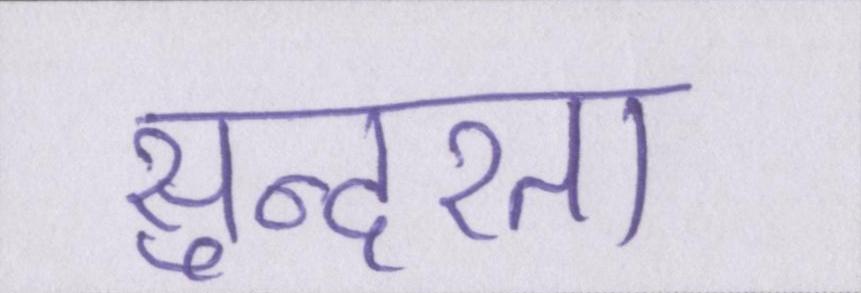 सुन्दरता